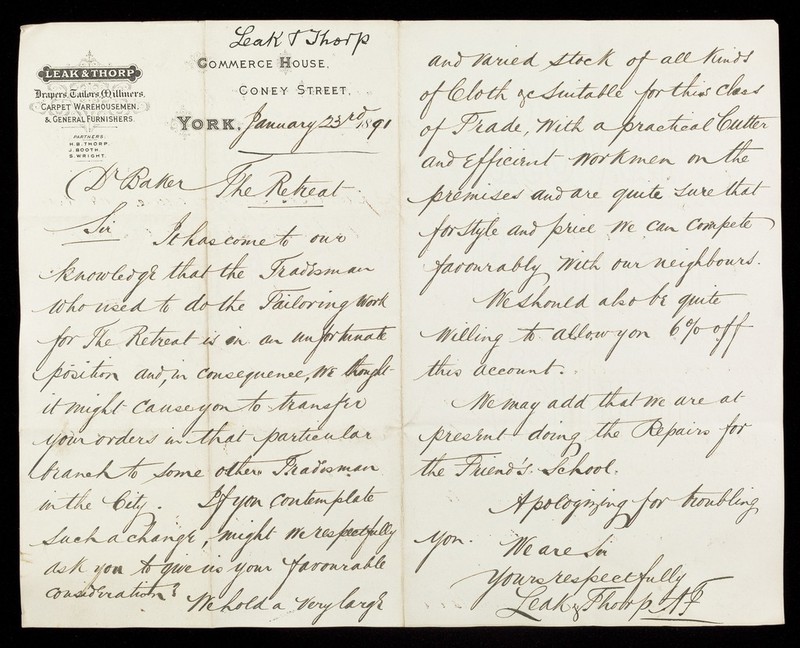 Leak & Thorp
LEAK & THORP
Drapers, Tailors, Milliners,
CARPET WAREHOUSEMEN,
& GENERAL FURNISHERS.
PARTNERS.
H. B. THORP.
J. BOOTH.
S. WRIGHT.
COMMERCE HOUSE,
CONEY STREET,
YORK, January 23rd 1891
Dr Baker The Retreat
Sir It has come to our
knowledge that the Tradesman
who used to do the Tailoring Work
for The Retreat is in an unfortunate
position and, in consequence, we thought
it might cause you to transfer
your orders in that particular
branch to some other Tradesman
in the City. If you contemplate
such a change, might we respectfully
ask you to give us your favourable
consideration? We hold a very large
and varied stock of all kinds
of Cloth &c suitable for this class
of Trade, With a practical Cutter
and efficient workmen on the
premises and are quite sure that
for style and price we can compete
favourably with our neighbours.
We should also be quite
willing to allow you 6% off
this account.
We may add that we are at
present doing the Repairs for
the Friend's School.
Apologizing for troubling
you. We are Sir
Yours respectfully
Leak & Thorp